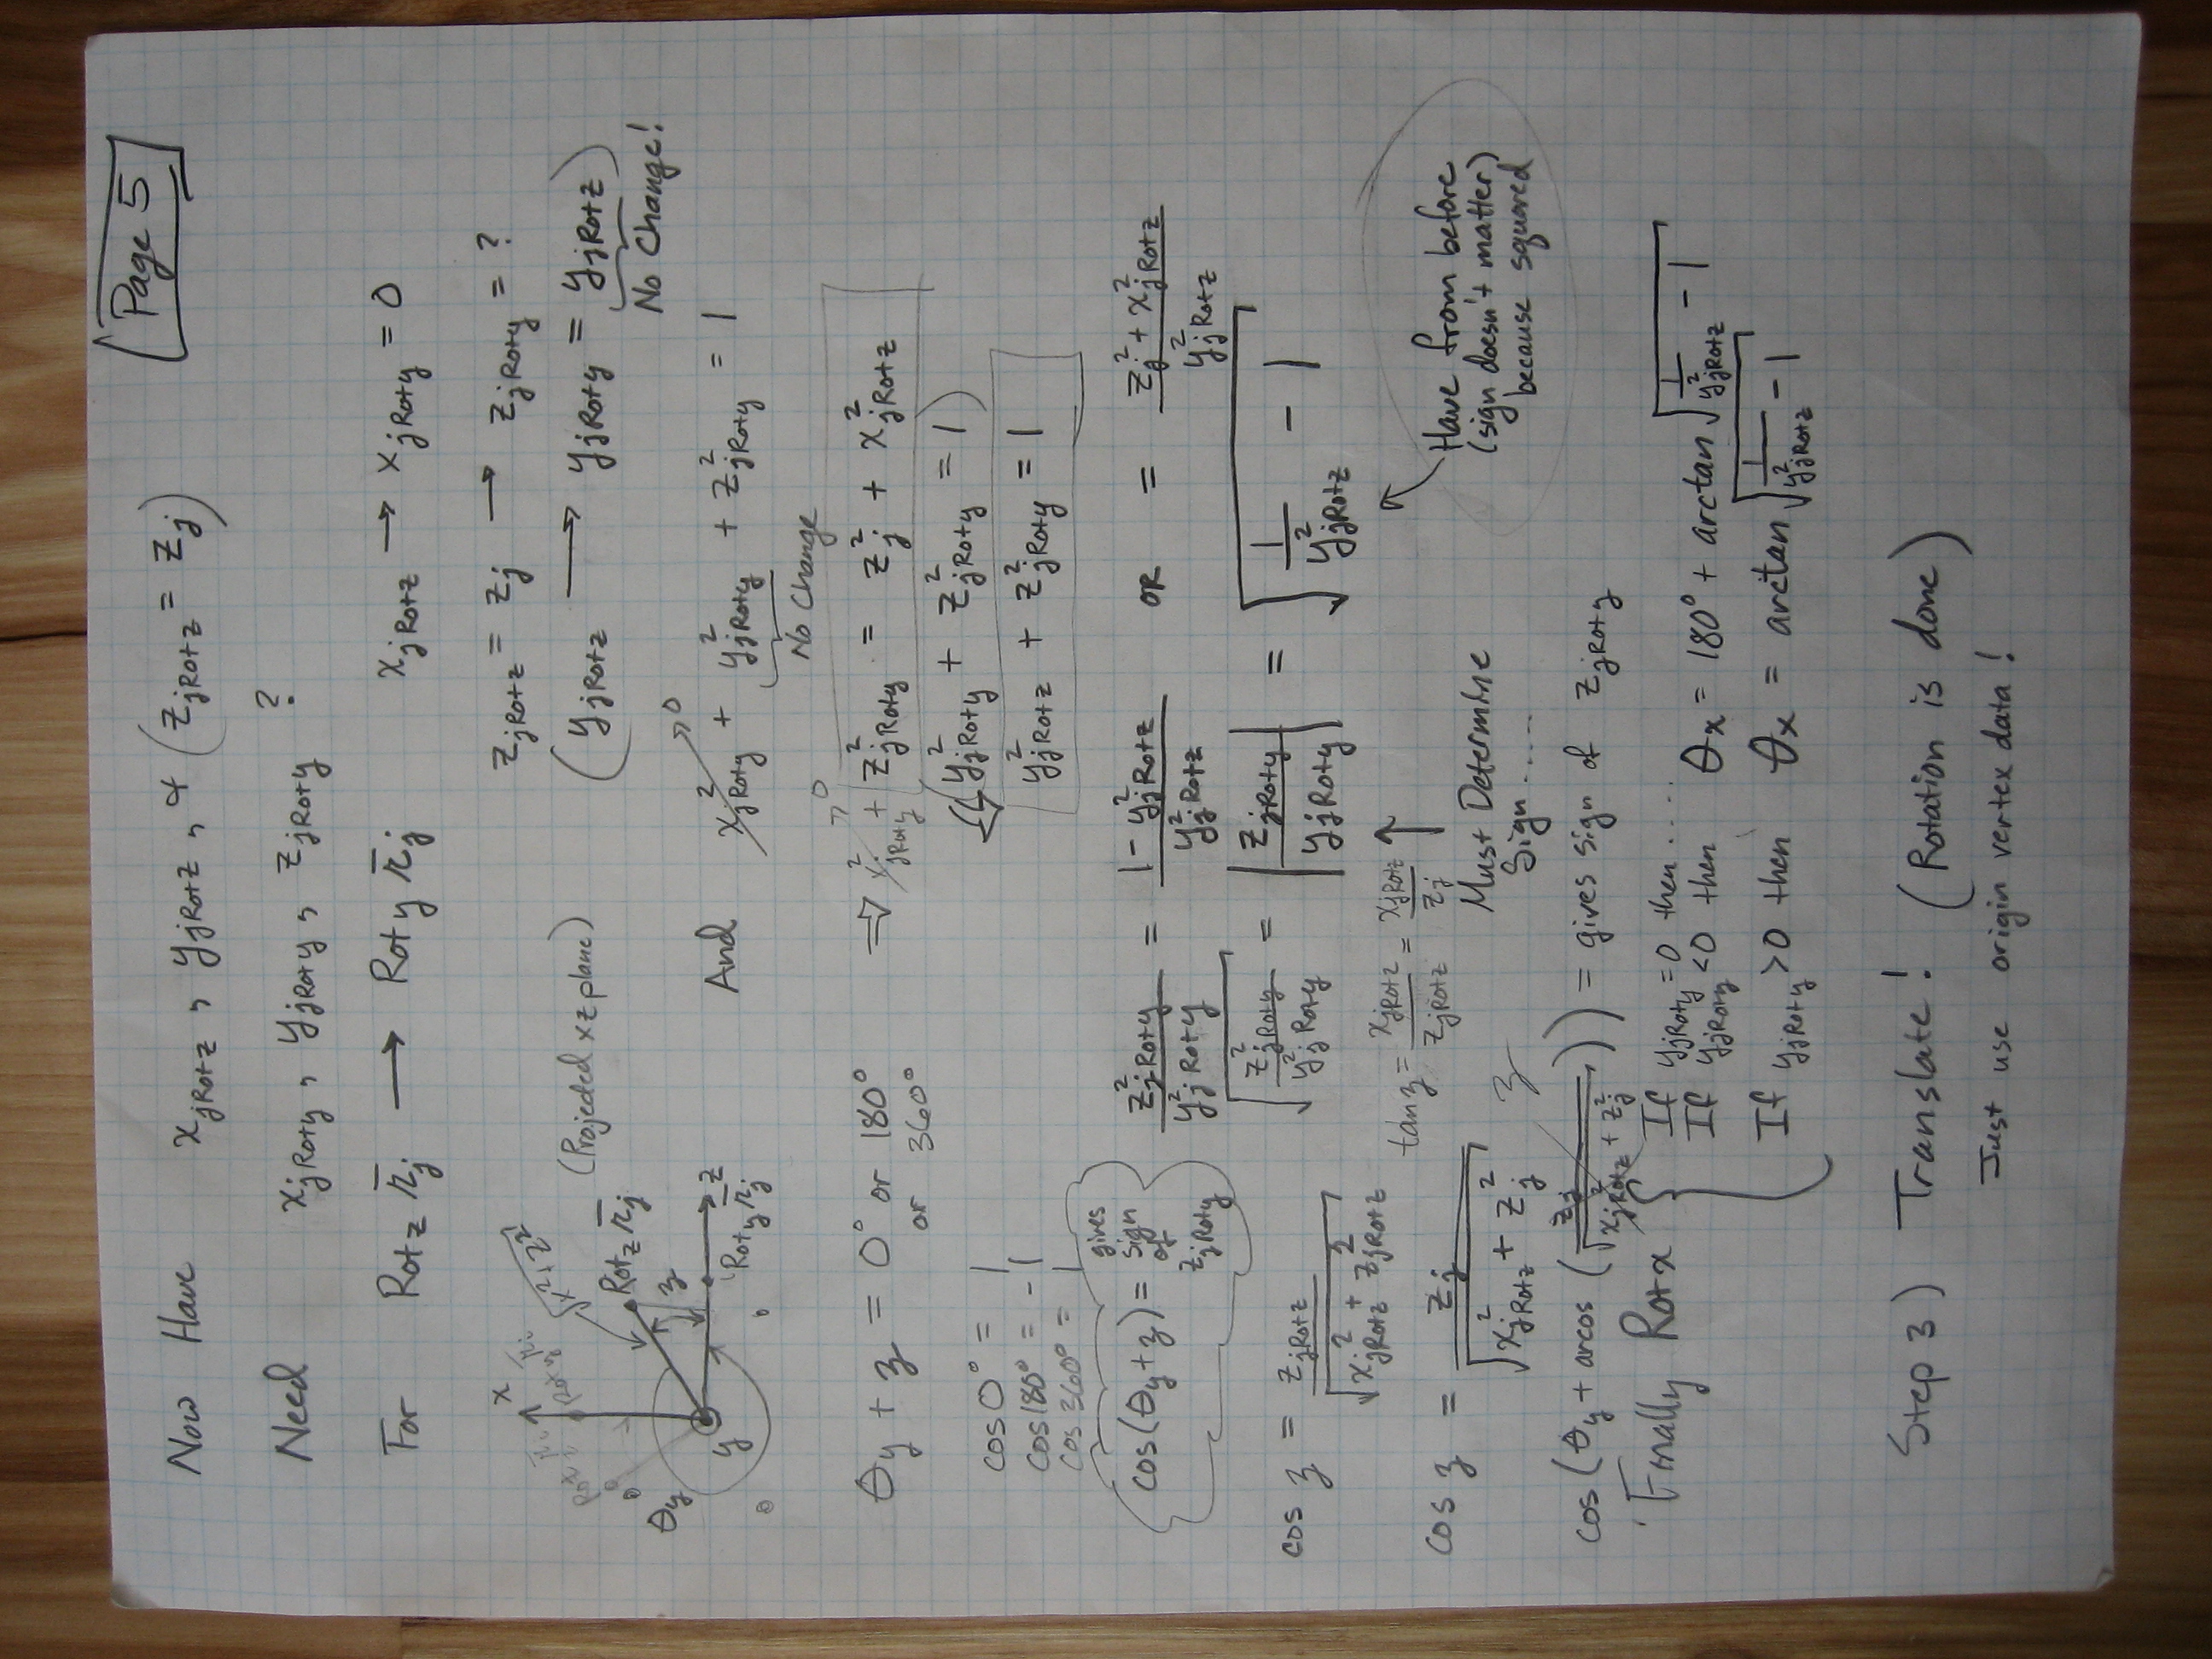 Page 5
Now Have x_jRotz , y_jRotz , & (z_jRotz = z_j)
Need x_jRoty , y_jRoty , z_jRoty ?
For Rotz r̄_j → Roty r̄_j x_jRotz → x_jRoty = 0
z_jRotz = z_j → z_jRoty = ?
(y_jRotz → y_jRoty = y_jRotz)
No Change!
x
√x²+z²
(Projected xz plane)
Rotz r̄_j
θy
z
y
Roty r̄_j
And x²_jRoty + y²_jRoty + z²_jRoty = 1
→0
No Change
θy + z = 0° or 180°
or 360°
⇒ x²_jRoty + z²_jRoty = z²_j + x²_jRotz
→0
(y²_jRoty + z²_jRoty = 1)
y²_jRotz + z²_jRoty = 1
cos 0° = 1
cos 180° = -1
cos 360° = 1
cos(θy + z) = gives sign of z_jRoty
z²_jRoty / y²_jRoty = (1 - y²_jRotz) / y²_jRotz OR = (z²_j + x²_jRotz) / y²_jRotz
√(z²_jRoty / y²_jRoty) = |z_jRoty / y_jRoty| = √(1 / y²_jRotz - 1)
cos z = z_jRotz / √(x²_jRotz + z²_jRotz)
tan z = x_jRotz / z_jRotz = x_jRotz / z_j
↑
Must Determine
Sign ....
Have from before
(sign doesn't matter)
because squared
cos z = z_j / √(x²_jRotz + z²_j)
z
cos(θy + arcos(z_j / √(x²_jRotz + z²_j))) = gives sign of z_jRoty
Finally Rotx
If y_jRoty = 0 then ....
If y_jRoty < 0 then θx = 180° + arctan √(1 / y²_jRotz - 1)
If y_jRoty > 0 then θx = arctan √(1 / y²_jRotz - 1)
Step 3) Translate! (Rotation is done)
Just use origin vertex data!